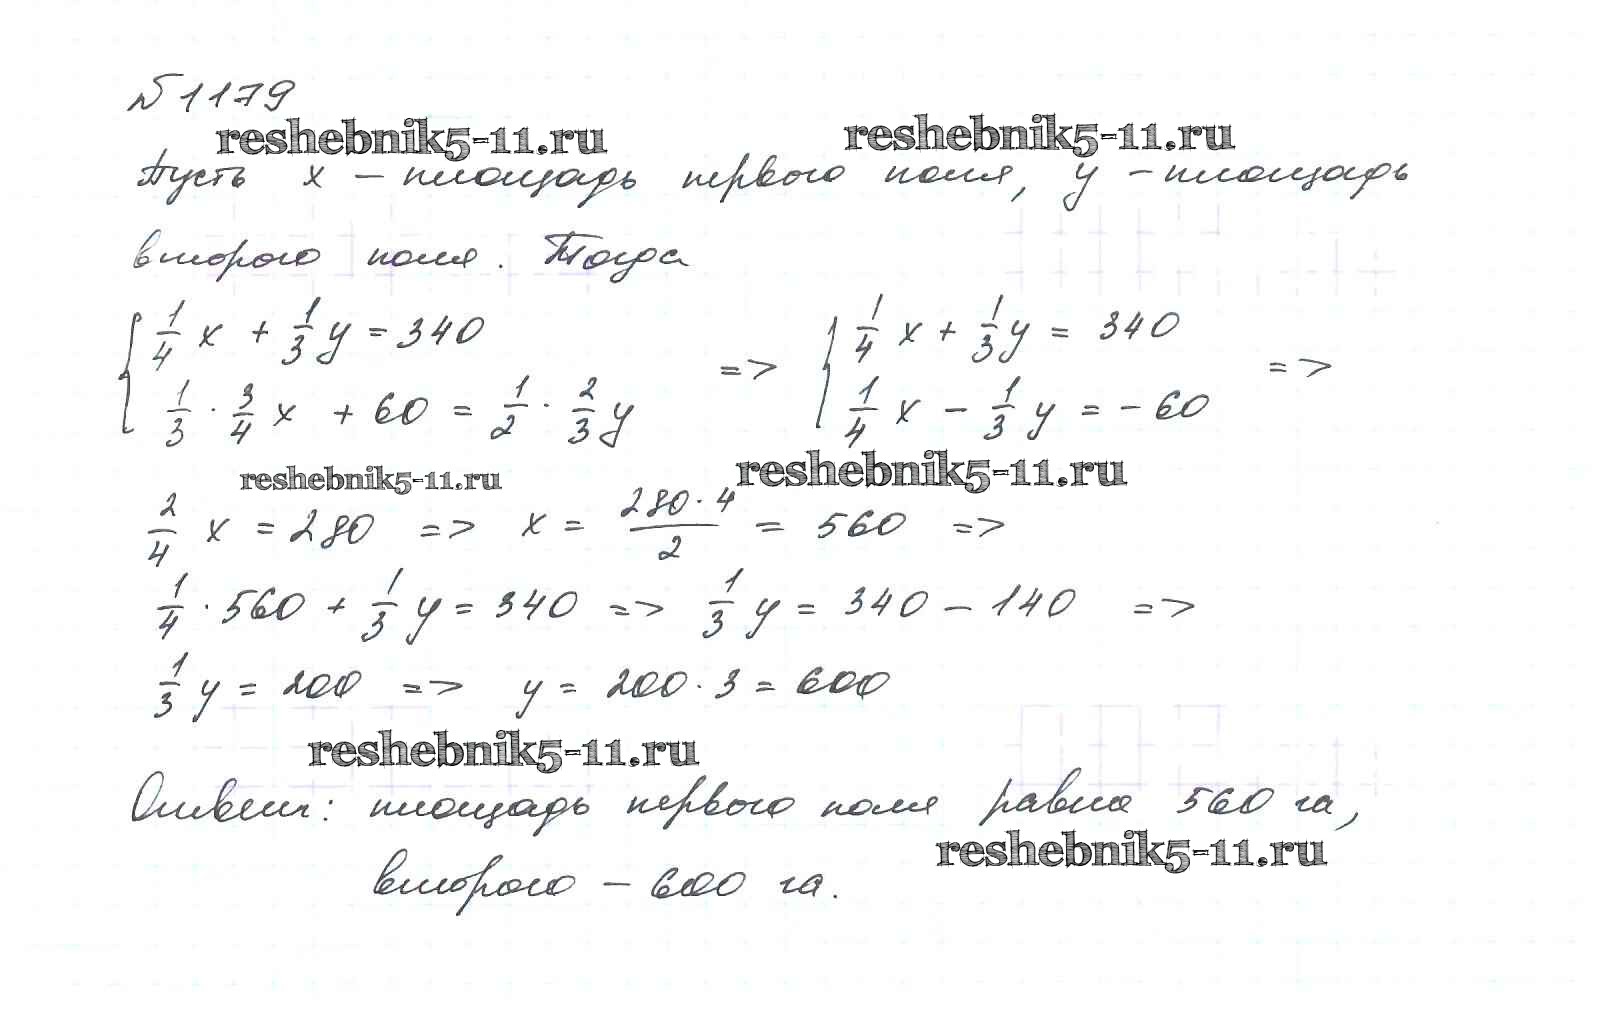 №1179
reshebnik5-11.ru reshebnik5-11.ru
Пусть x – площадь первого поля, y – площадь
второго поля. Тогда
{ 1/4 x + 1/3 y = 340 => { 1/4 x + 1/3 y = 340 =>
1/3 · 3/4 x + 60 = 1/2 · 2/3 y 1/4 x – 1/3 y = – 60
reshebnik5-11.ru reshebnik5-11.ru
2/4 x = 280 => x = 280·4/2 = 560 =>
1/4 · 560 + 1/3 y = 340 => 1/3 y = 340 – 140 =>
1/3 y = 200 => y = 200 · 3 = 600
reshebnik5-11.ru
Ответ: площадь первого поля равна 560 га,
reshebnik5-11.ru
второго – 600 га.